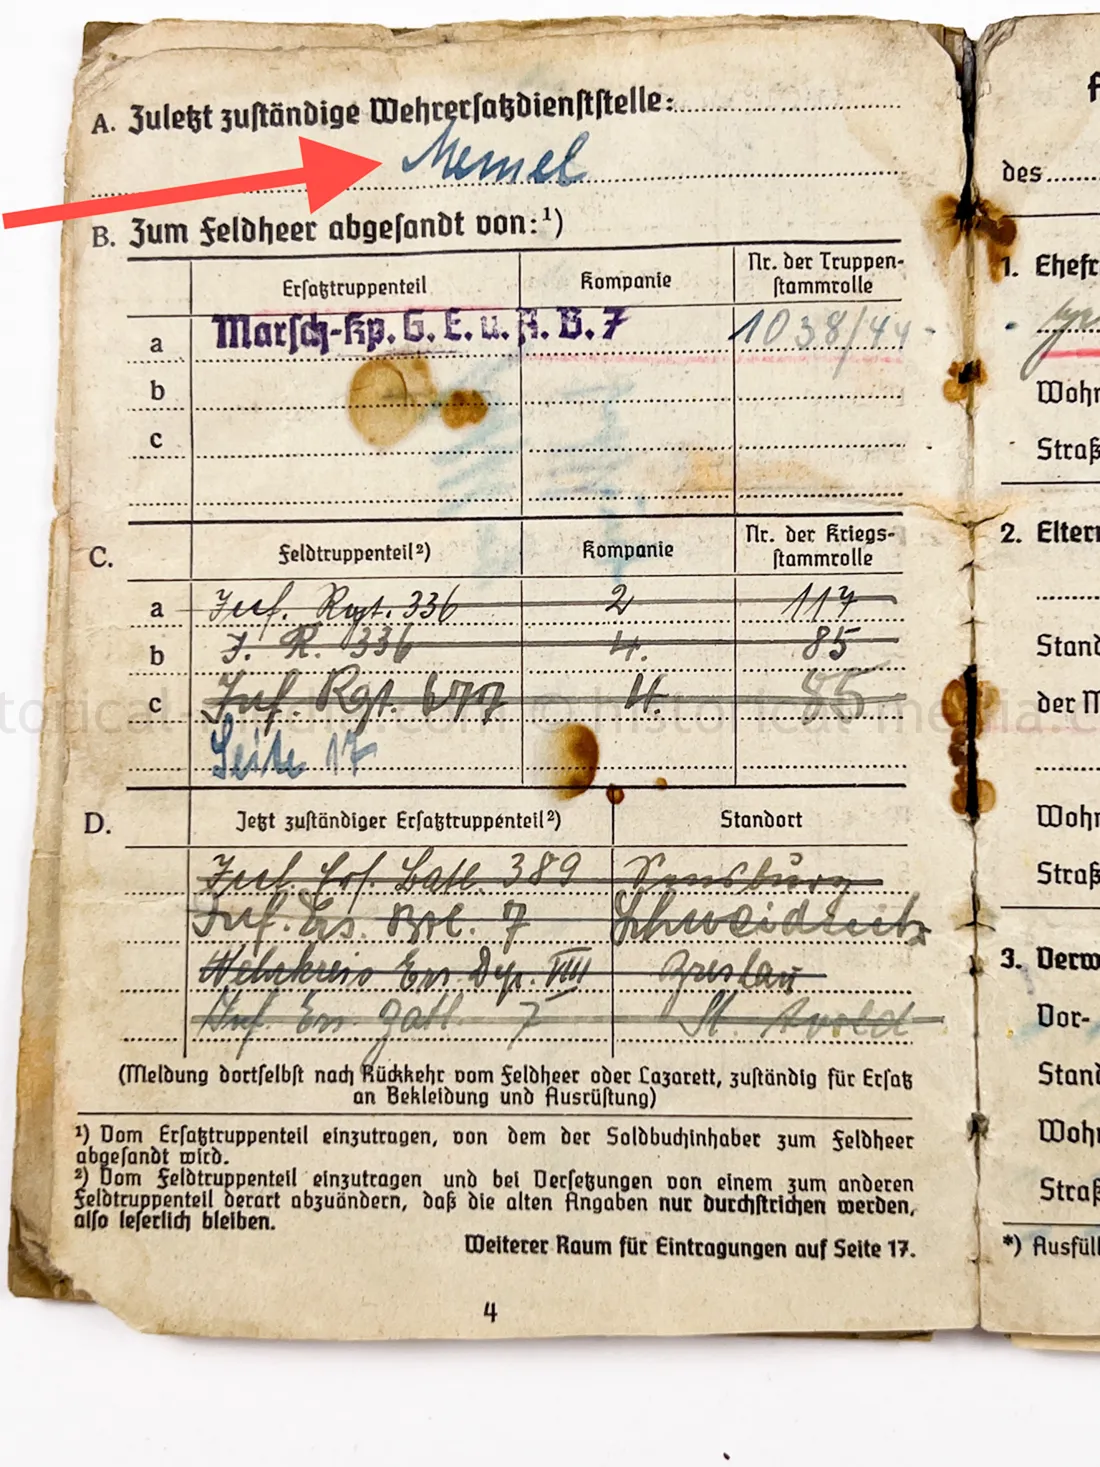 A. Zuletzt zuständige Wehrersatzdienststelle:
Memel
B. Zum Feldheer abgesandt von:¹)
Ersatztruppenteil Kompanie Nr. der Truppen-
stammrolle
a Marsch-Kp. G. E. u. A. B. 7 1038/44
b
c
C. Feldtruppenteil²) Kompanie Nr. der Kriegs-
stammrolle
a Inf. Rgt. 336 2 117
b J. R. 336 4. 85
c Inf. Rgt. 677 4. 85
Seite 17
D. Jetzt zuständiger Ersatztruppenteil²) Standort
Inf. Ers. Batl. 389 Sensburg
Inf. Ers. Btl. 7 Schweidnitz
Wehrkreis Ers. Dep. VIII Breslau
Inf. Ers. Batl. 7 St. Avold
(Meldung dortselbst nach Rückkehr vom Feldheer oder Lazarett, zuständig für Ersatz
an Bekleidung und Ausrüstung)
¹) Vom Ersatztruppenteil einzutragen, von dem der Soldbuchinhaber zum Feldheer
abgesandt wird.
²) Vom Feldtruppenteil einzutragen und bei Versetzungen von einem zum anderen
Feldtruppenteil derart abzuändern, daß die alten Angaben nur durchstrichen werden,
also leserlich bleiben.
Weiterer Raum für Eintragungen auf Seite 17.
4
des
1. Ehefr
Wohn
Straß
2. Eltern
Stand
der M
Wohn
Straß
3. Verw
Vor-
Stand
Wohn
Straß
*) Ausfüll